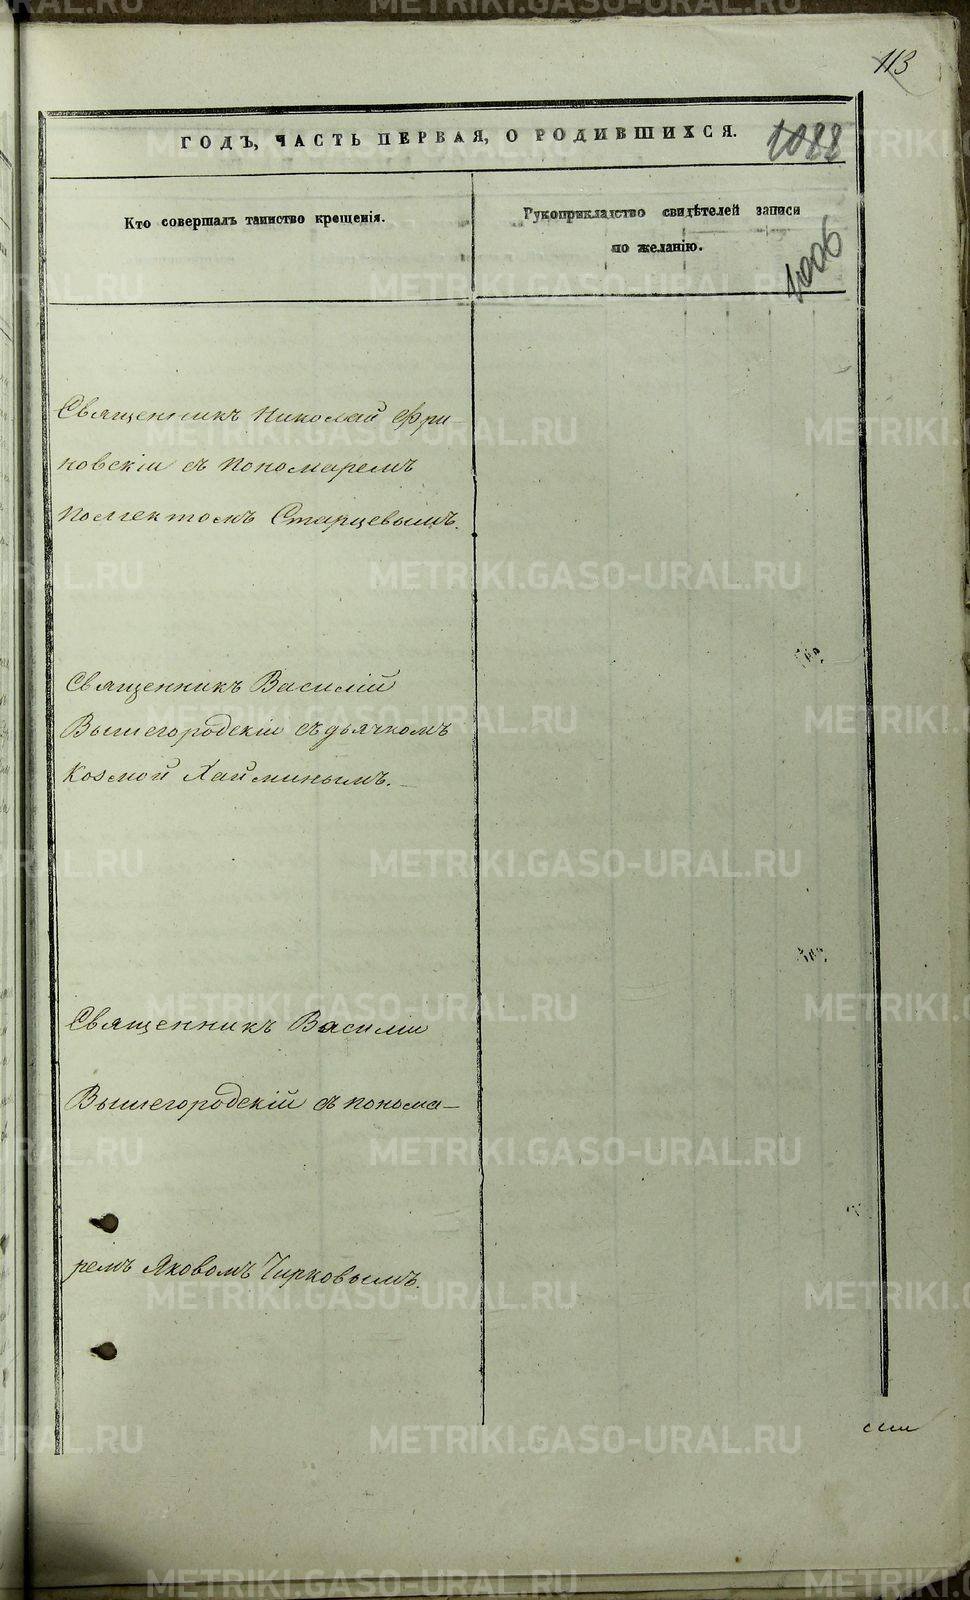 113
ГОДЪ, ЧАСТЬ ПЕРВАЯ, О РОДИВШИХСЯ.
1088
Кто совершалъ таинство крещенія.
Рукоприкладство свидѣтелей записи
по желанію.
1006
Священникъ Николай Фри-
новскій съ пономаремъ
Полиектомъ Старцевымъ.
Священникъ Василій
Вышегородскій съ дьячкомъ
Козмой Хайминымъ.
Священникъ Василій
Вышегородскій съ понома-
ремъ Яковомъ Чирковымъ.
METRIKI.GASO-URAL.RU